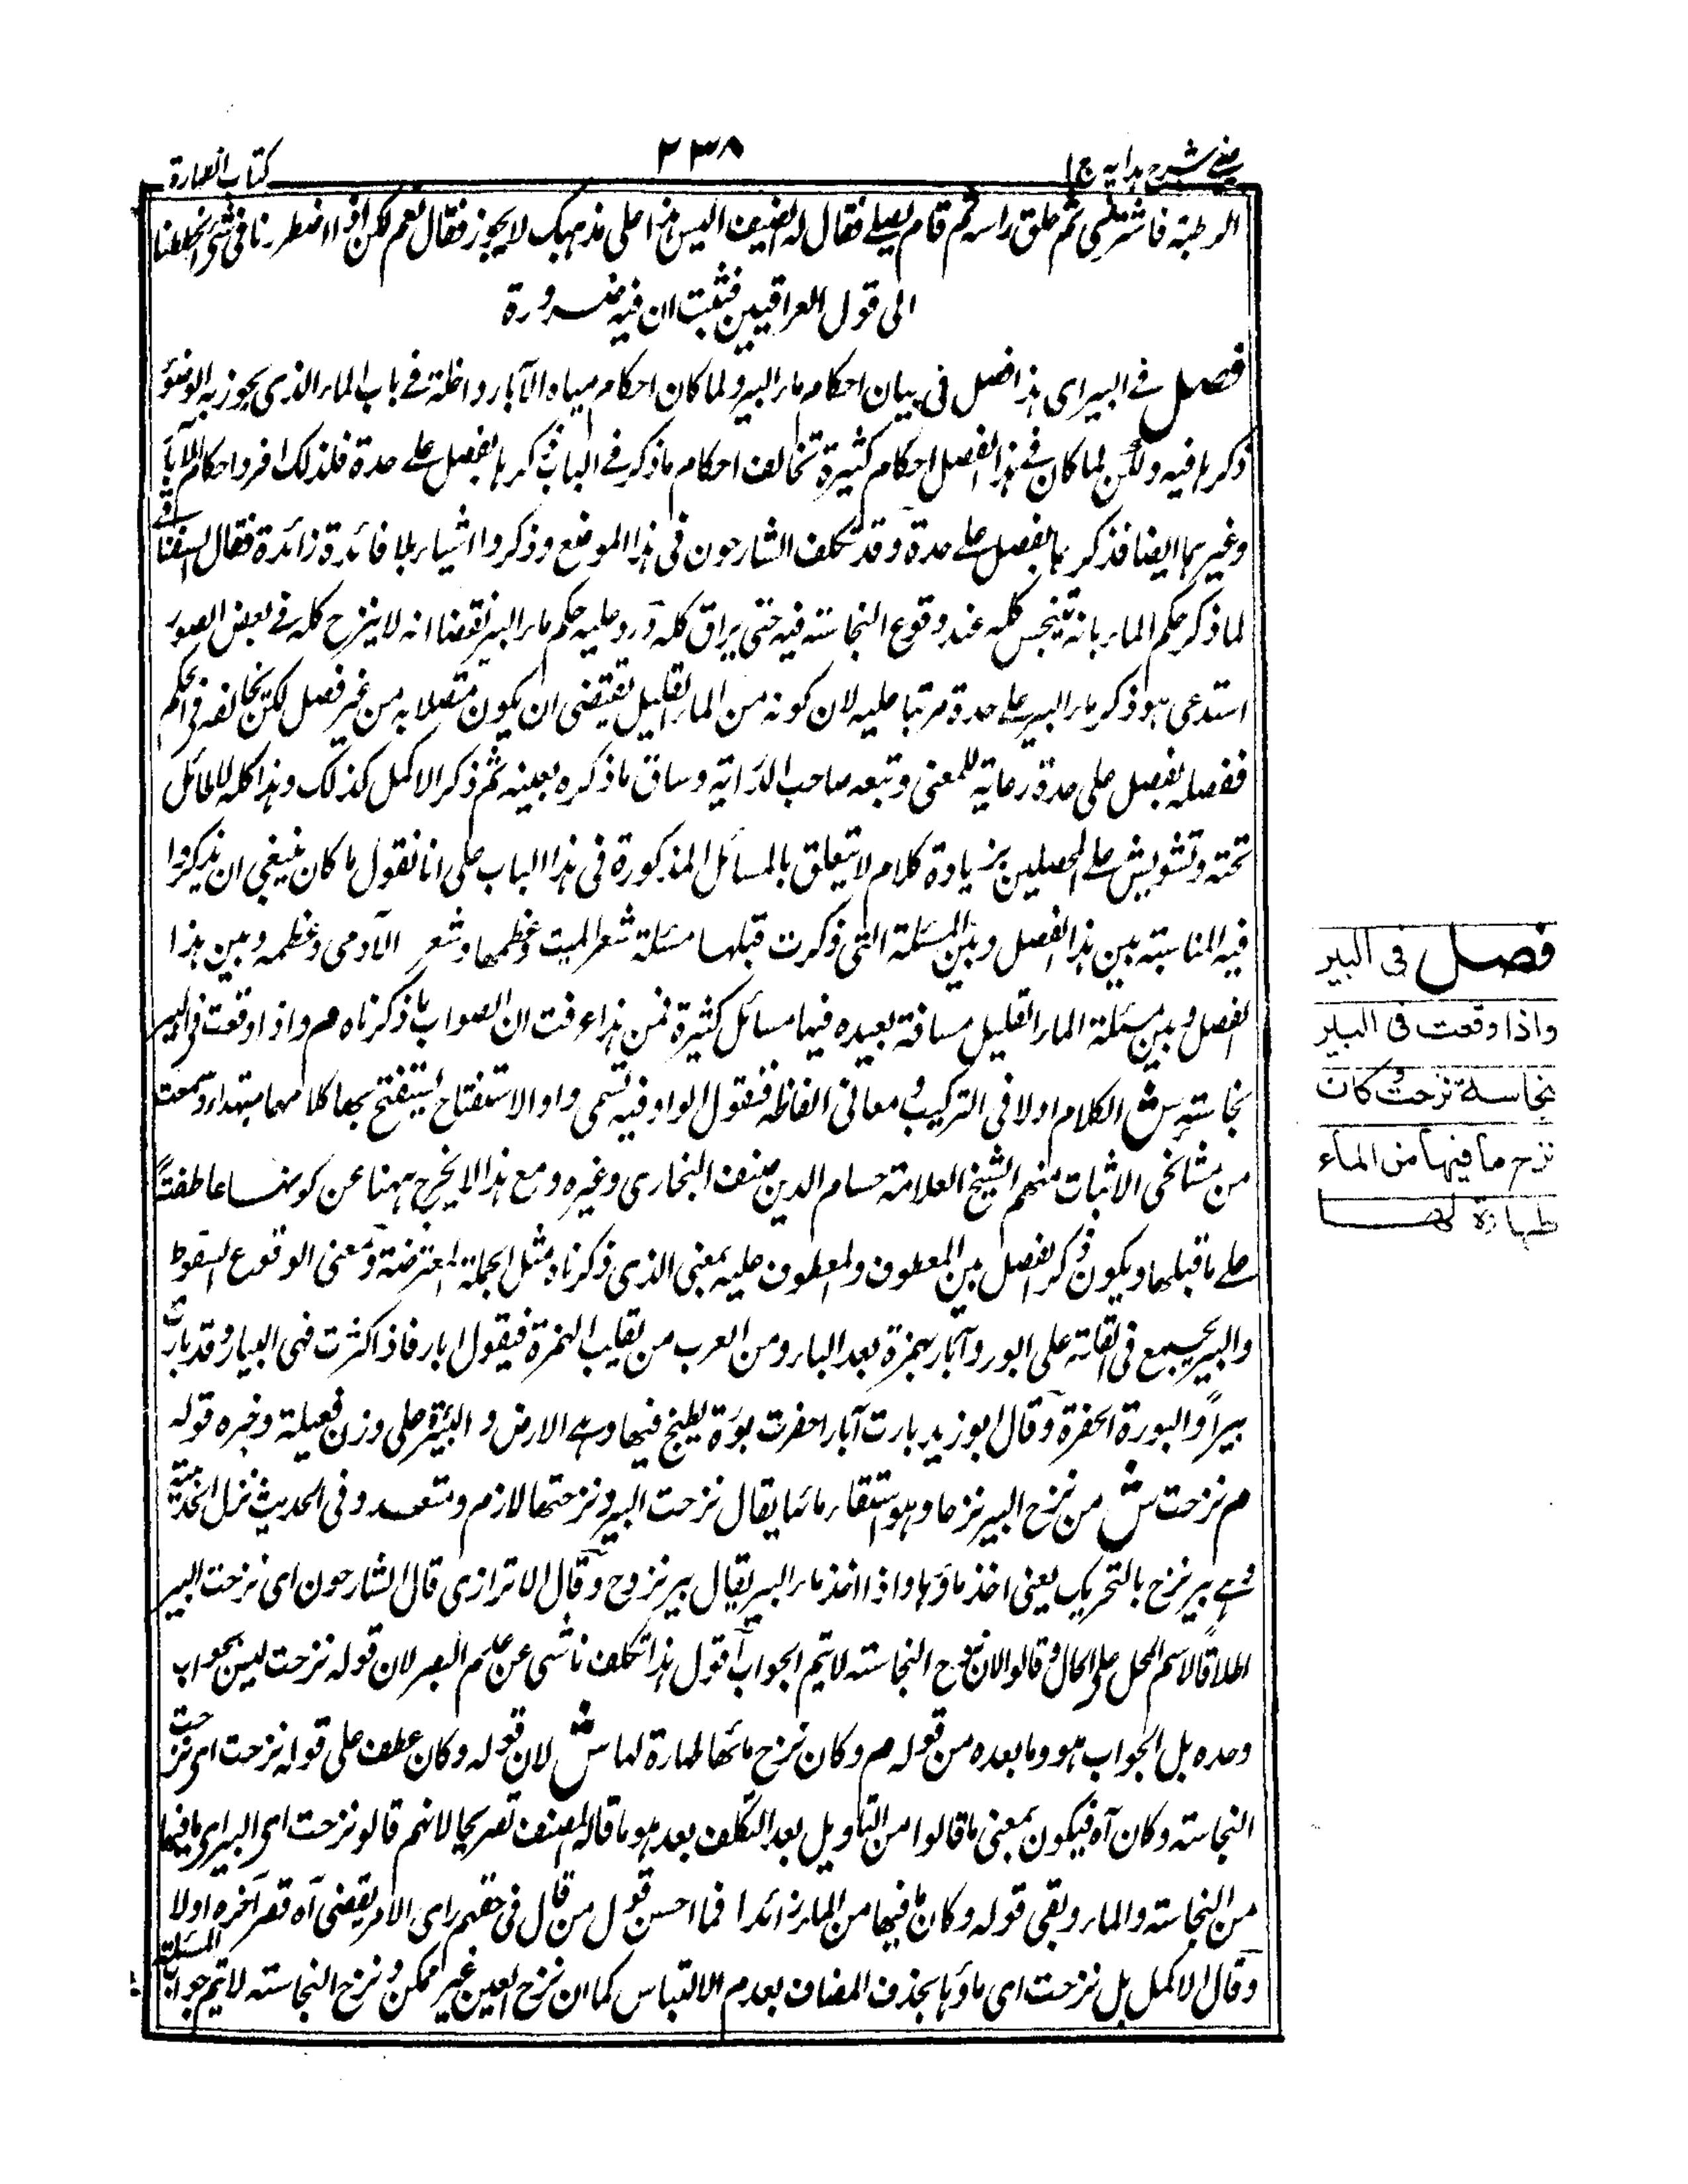 عینی شرح هدایه ج ۱
۲۳۸
کتاب الطهارة
الرطبة فاشترى ثم حلق راسه ثم قام يصلے فقال له الضيف اليس هذا على مذهبك لا يجوز فقال نعم لكن اذا اضطررنا فى شئ انحططنا
الى قول العراقيين فثبت ان فيه ضرورة
فصل فے البير اى هذا فصل فى بيان احكام ماء البير ولما كان احكام مياه الآبار داخلة فے باب الماء الذى يجوز به الوضوء
ذكرها فيه ولكن لما كان فے هذا الفصل احكام كثيرة تخالف احكام ما ذكر فے الباب ذكرها بفصل علے حدة فلذلك افرد احكام الآبار
وغيرهما ايضا فذكرهما بفصل علے حدة وقد تكلف الشارحون فى هذا الموضع وذكروا اشياء بلا فائدة زائدة فقال السغناقے
لما ذكر حكم الماء بانه يتنجس كله عند وقوع النجاسة فيه حتى يراق كله ورد عليه حكم ماء البير نقضا انه لا ينزح كله فے بعض الصور
استدعى هو ذكر ماء البير علے حدة مرتبا عليه لان كونه من الماء القليل يقتضى ان يكون متصلا به من غير فصل لكن يخالفه فى الحكم
ففصله بفصل على حدة رعاية للمعنى وتبعه صاحب الدراية وساق ما ذكره بعينه ثم ذكر الاكمل كذلك وهذا كله لا طائل
تحته وتشويش علے المحصلين بزيادة كلام لا يتعلق بالمسائل المذكورة فى هذا الباب على انا نقول ما كان ينبغى ان يذكروا
فيه المناسبة بين هذا الفصل وبين المسئلة التى ذكرت قبلها مسئلة شعر الميت وعظمها وشعر الآدمى وعظمه وبين هذا
الفصل وبين مسئلة الماء القليل مسافة بعيده فيها مسائل كثيرة فمن هذا عرفت ان الصواب ما ذكرناه م واذا وقعت فى البير
نجاسة ش الكلام اولا فى التركيب ومعانى الفاظه فنقول الواو فيه تسمى واو الاستفتاح يستفتح بها كلامها مبتداء وسمعت
من مشائخى الاثبات منهم الشيخ العلامة حسام الدين مصنف البخارى وغيره ومع هذا لا يخرج ههنا عن كونها عاطفة
علے ما قبلها ويكون ذكر الفصل بين المعطوف والمعطوف عليه بمعنى الذى ذكرناه مثل الجملة المعترضة ومعنى الوقوع السقوط
والبير يجمع فى القلة على ابور وآبار بهمزة بعد الباء ومن العرب من يقلب الهمزة فيقول ابار فاذا كثرت فهى البيار وقد بارت
بيراً والبورة الحفرة وقال ابوزيد بارت آبار احفرت بورة يطبخ فيها وهے الارض و البئيرة على وزن فعيلة وخبره قوله
م نزحت ش من نزح البير نزحا وهو استقاء مائها يقال نزحت البير ونزحتها لازم ومتعد وفى الحديث نزل الحديبية
وهے بير نزح بالتحريك يعنى اخذ ماؤها واذا اخذ ماء البير يقال بير نزوح وقال الاترازى قال الشارحون اى نزحت البير
اطلاقا لاسم المحل على الحال وقالوا لان نزح النجاسة لا يتم الجواب اقول هذا تكلف ناشى عن عدم البصر لان قوله نزحت ليس بجواب
وحده بل الجواب هو وما بعده من قوله م وكان نزح مائها طهارة لها ش لان قوله وكان عطف على قوله نزحت اى نزحت
النجاسة وكان آه فيكون بمعنى ما قالوا من التاويل بعد التكلف بعد هو ما قاله المصنف تصريحا لانهم قالو نزحت اى البير اى ما فيها
من النجاسة والماء وبقى قوله وكان ما فيها من الماء زائدا فما احسن قول من قال فى حقهم راى الامر يقضى آه قصر آخره اولا
وقال الاكمل بل نزحت اى ماؤها بحذف المضاف بعدم الالتباس كما ان نزح العين غير ممكن ونزح النجاسة لا يتم جواب المسئلة
فصل فى البير
واذا وقعت فى البير
نجاسة نزحت وكان
نزح ما فيها من الماء
طهارة لها